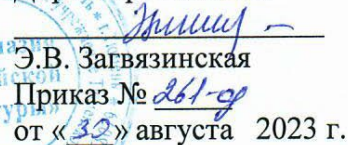 Э.В. Загвязинская
Приказ № 261-од
от «30» августа 2023 г.